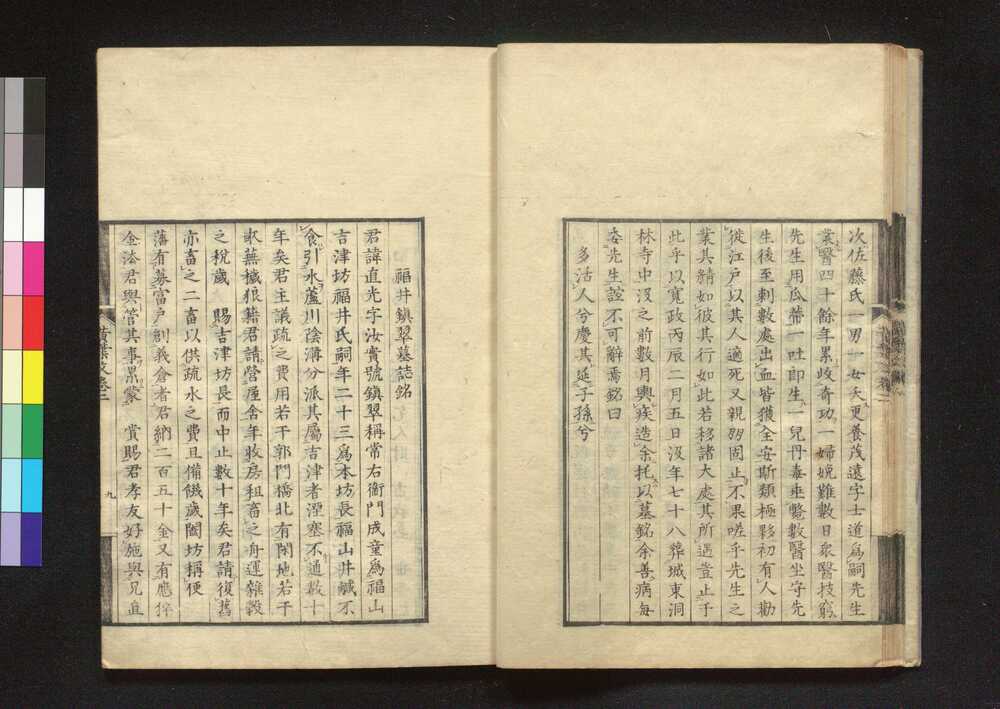 次佐藤氏一男一女夭更養茂遠字士道為嗣先生
業醫四十餘年累收奇功一婦娩難數日衆醫技窮
先生用瓜蔕一吐即生一兒丹毒垂斃數醫坐守先
生後至刺數處出血皆獲全安斯類極夥初有人勸
從江戶以其人適死又親朋固止不果嗟乎先生之
業其精如彼其行如此若移諸大處其所遇豈止于
此乎以寬政丙辰二月五日没年七十八葬城東洞
林寺中没之前數月輿疾造余托以墓銘余善病每
委先生誼不可辭焉銘曰
多活人兮慶其延子孫兮
福井鎮翠墓誌銘
君諱直光字汝賁號鎮翠稱常右衞門成童為福山
吉津坊福井氏嗣年二十三為本坊長福山井鹹不
食引水蘆川陰溝分派其屬吉津者湮塞不通數十
年矣君主議疏之費用若干郭門橋北有閑地若干
畝蕪穢狼籍君請營屋舍年收房租畜之舟運雜穀
之稅歲賜吉津坊長而中止數十年矣君請復舊
亦畜之二畜以供疏水之費且備饑歲闔坊稱便
藩有募富戶剏義倉者君納二百五十金又有應猝
金法君與管其事累蒙賞賜君孝友好施與兄直
黃葉文卷三
九